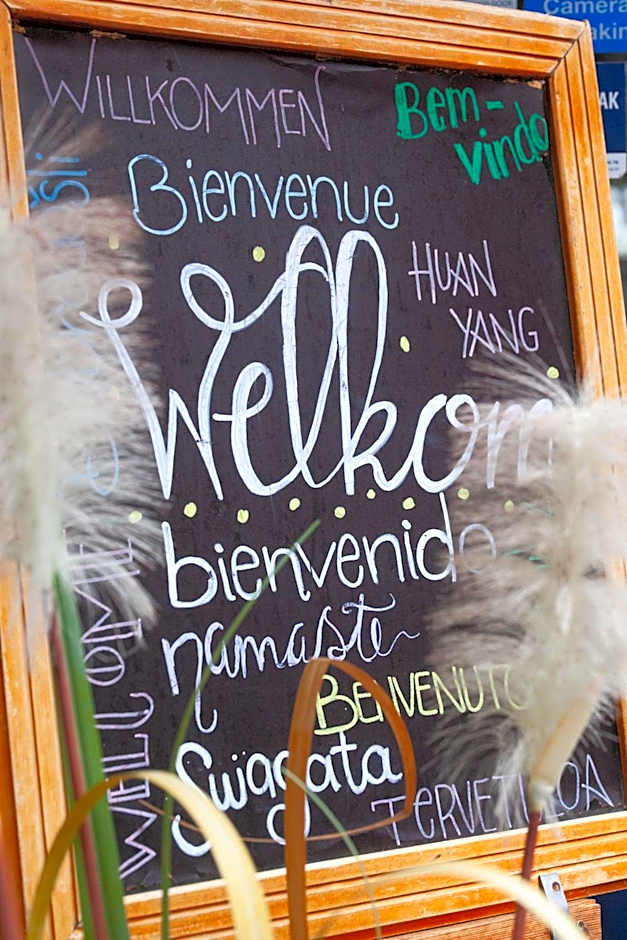 Camera
akin
AK
WILLKOMMEN
Bem-
vindo
Bienvenue
HUAN
YANG
Welkom
bienvenido
namaste
BENVENUTO
Swagata
WELCOME